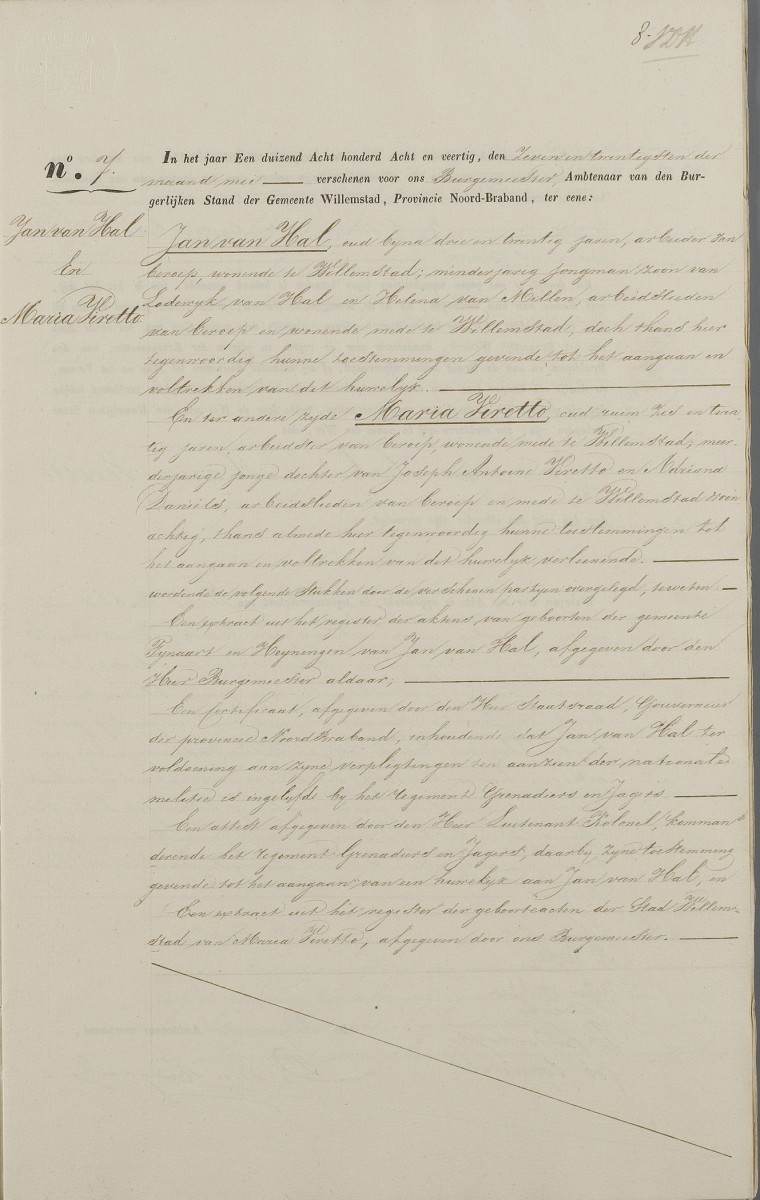 8.
nº. 7.
In het jaar Een duizend Acht honderd Acht en veertig, den Zeven en twentigsten der
maand mei verschenen voor ons Burgemeester, Ambtenaar van den Bur-
gerlijken Stand der Gemeente Willemstad, Provincie Noord-Braband, ter eene:
Jan van Hal
En
Maria Piretto.
Jan van Hal, oud byna drie en twentig jaren, arbeider van
beroep, wonende te Willemstad; minderjarig jongman zoon van
Lodewyk van Hal en Helena van Millen, arbeidslieden
van beroep en wonende mede te Willemstad, doch thans hier
tegenwoordig hunne toestemmingen gevende tot het aangaan en
voltrekken van dit huwelyk.
En ter andere zyde Maria Piretto, oud ruim zes en twen-
tig jaren, arbeidster van beroep, wonende mede te Willemstad, meer-
derjarige jonge dochter van Joseph Antoine Piretto en Adriana
Daniels, arbeidslieden van beroep en mede te Willemstad woon
achtig, thans almede hier tegenwoordig hunne toestemmingen tot
het aangaan en voltrekken van dit huwelyk verleenende.
wordende de volgende stukken door de verschenen partyen overgelegd, teweten
Een extract uit het register der aktens van geboorten der gemeente
Fynaart en Heyningen van Jan van Hal, afgegeven door den
Heer Burgemeester aldaar;
Een Certificaat, afgegeven door den Heer Staatsraad, Gouverneur
der provincie Noord Braband, inhoudende dat Jan van Hal ter
voldoening aan zyne verplegtingen ten aanzien der nationale
melitie is ingelyfd by het regement Grenadiers en Jagers
Een attest afgegeven door den Heer Luitenant Kolonel, komman-
derende het regement Grenadiers en Jagers, daarby zyne toestemming
gevende tot het aangaan van een huwelyk aan Jan van Hal, en
Een extract uit het register der geboorteacten der Stad Willem-
stad van Maria Piretto, afgegeven door ons Burgemeester.